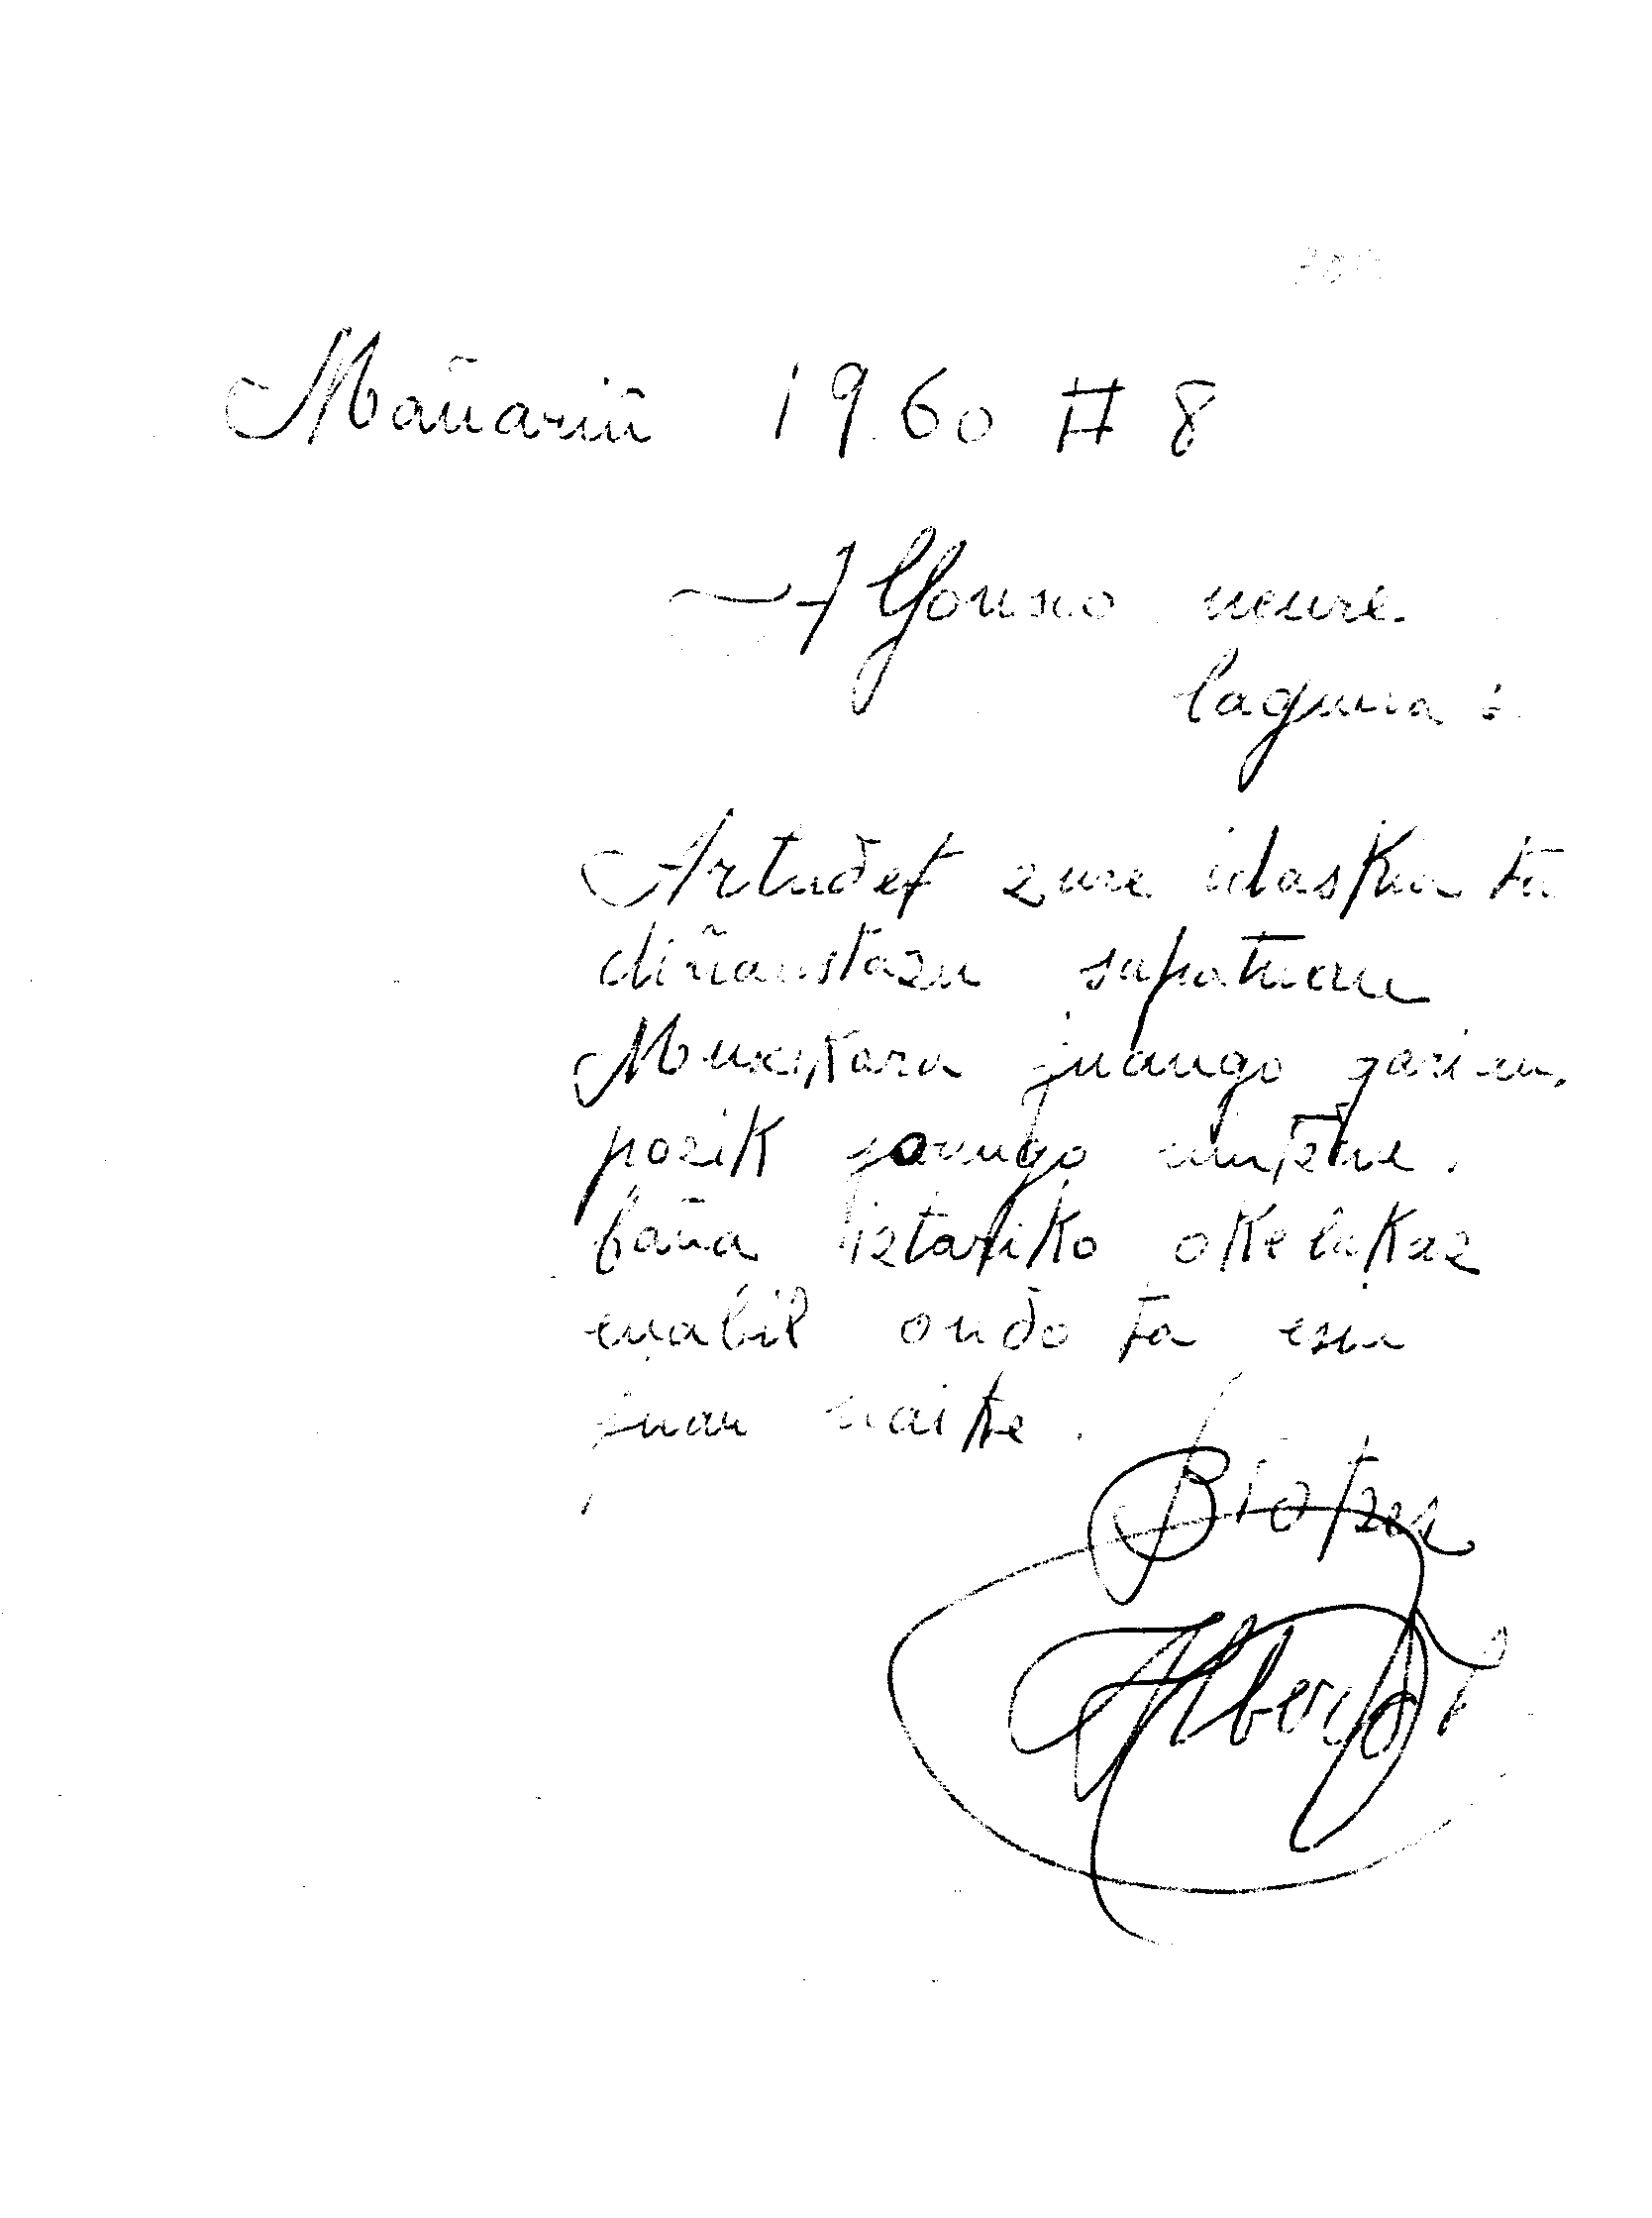 Mañariñ 1960 II 8
Alfonso neure
laguna :
Artuđet zure idaskia ta
diñaustazu sapatuan
Muxikara juango garien,
pozik juango nintzke.
baña iztariko okelakaz
enabil onđo ta esin
juan naike.
Biotzez
Alberto